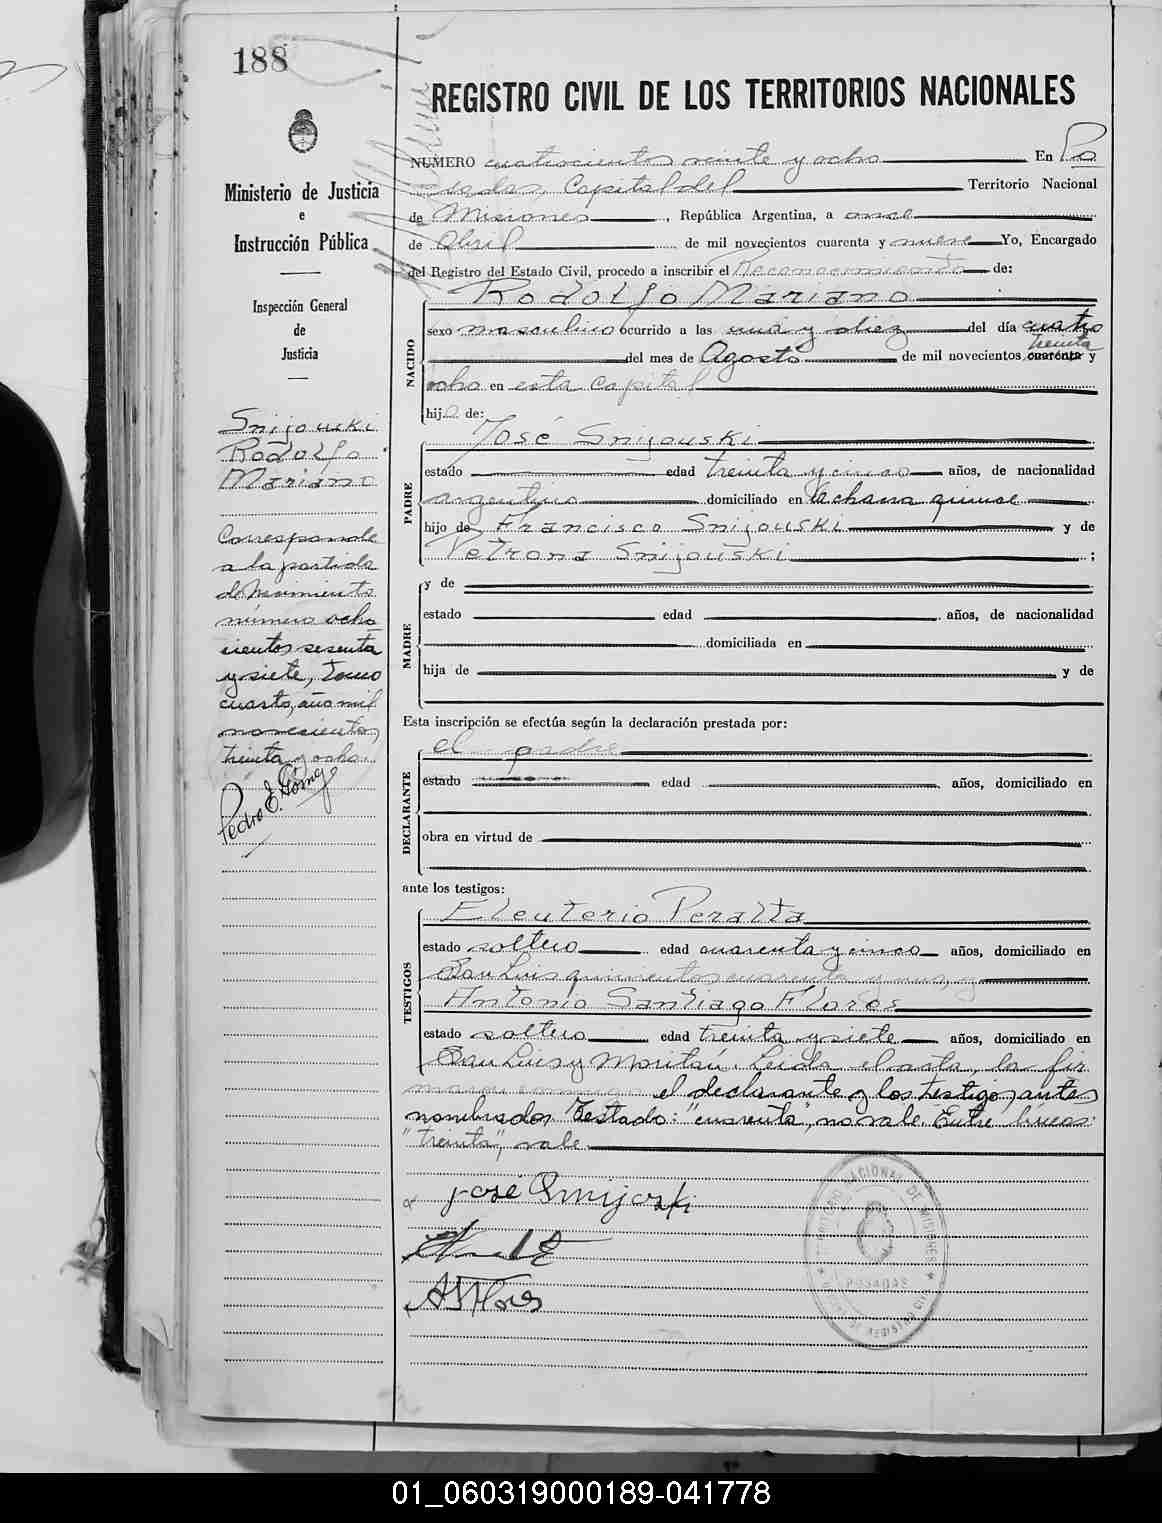 188
REGISTRO CIVIL DE LOS TERRITORIOS NACIONALES
Ministerio de Justicia
e
Instrucción Pública
Inspección General
de
Justicia
Snijouski
Rodolfo
Mariano
Corresponde
a la partida
de Nacimiento
número ocho
cientos sesenta
y siete, tomo
cuarto, año mil
novecientos
treinta y ocho.
Pedro E. Gómez
NUMERO cuatrocientos veinte y ocho En Po
sadas, Capital del Territorio Nacional
de Misiones, República Argentina, a once
de Abril de mil novecientos cuarenta y nueve Yo, Encargado
del Registro del Estado Civil, procedo a inscribir el Reconocimiento de:
NACIDO
Rodolfo Mariano
sexo masculino ocurrido a las una y diez del día cuatro
treinta
del mes de Agosto de mil novecientos cuarenta y
ocho en esta capital
hijo de:
PADRE
José Snijouski
estado edad treinta y cinco años, de nacionalidad
argentino domiciliado en la chacra quince
hijo de Francisco Snijouski y de
Petrona Snijouski ;
MADRE
y de
estado edad años, de nacionalidad
domiciliada en
hija de y de
Esta inscripción se efectúa según la declaración prestada por:
DECLARANTE
el padre
estado edad años, domiciliado en
obra en virtud de
ante los testigos:
TESTIGOS
Eleuterio Peralta
estado soltero edad cuarenta y cinco años, domiciliado en
San Luis quinientos cuarenta y
Antonio Santiago Flores
estado soltero edad treinta y siete años, domiciliado en
San Luis y Moritán. Leida el acta, la fir
man conmigo el declarante y los testigos antes
nombrados Testado: "cuarenta", no vale. Entre líneas:
"treinta", vale
José Smijoski
A S Flores
TERRITORIO NACIONAL DE MISIONES
POSADAS
01_060319000189-041778